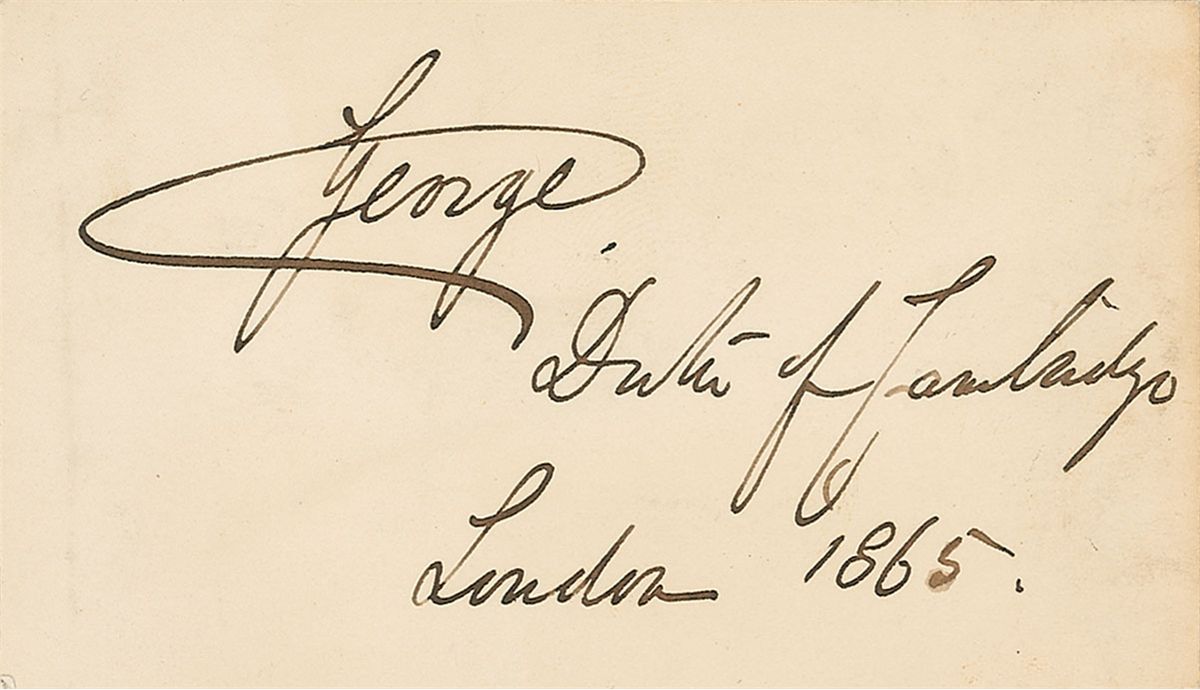 George
Duke of Cambridge
London 1865.